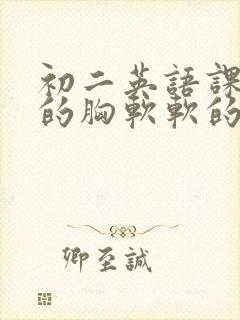 初二英語課
的胸軟軟的
卿至誠